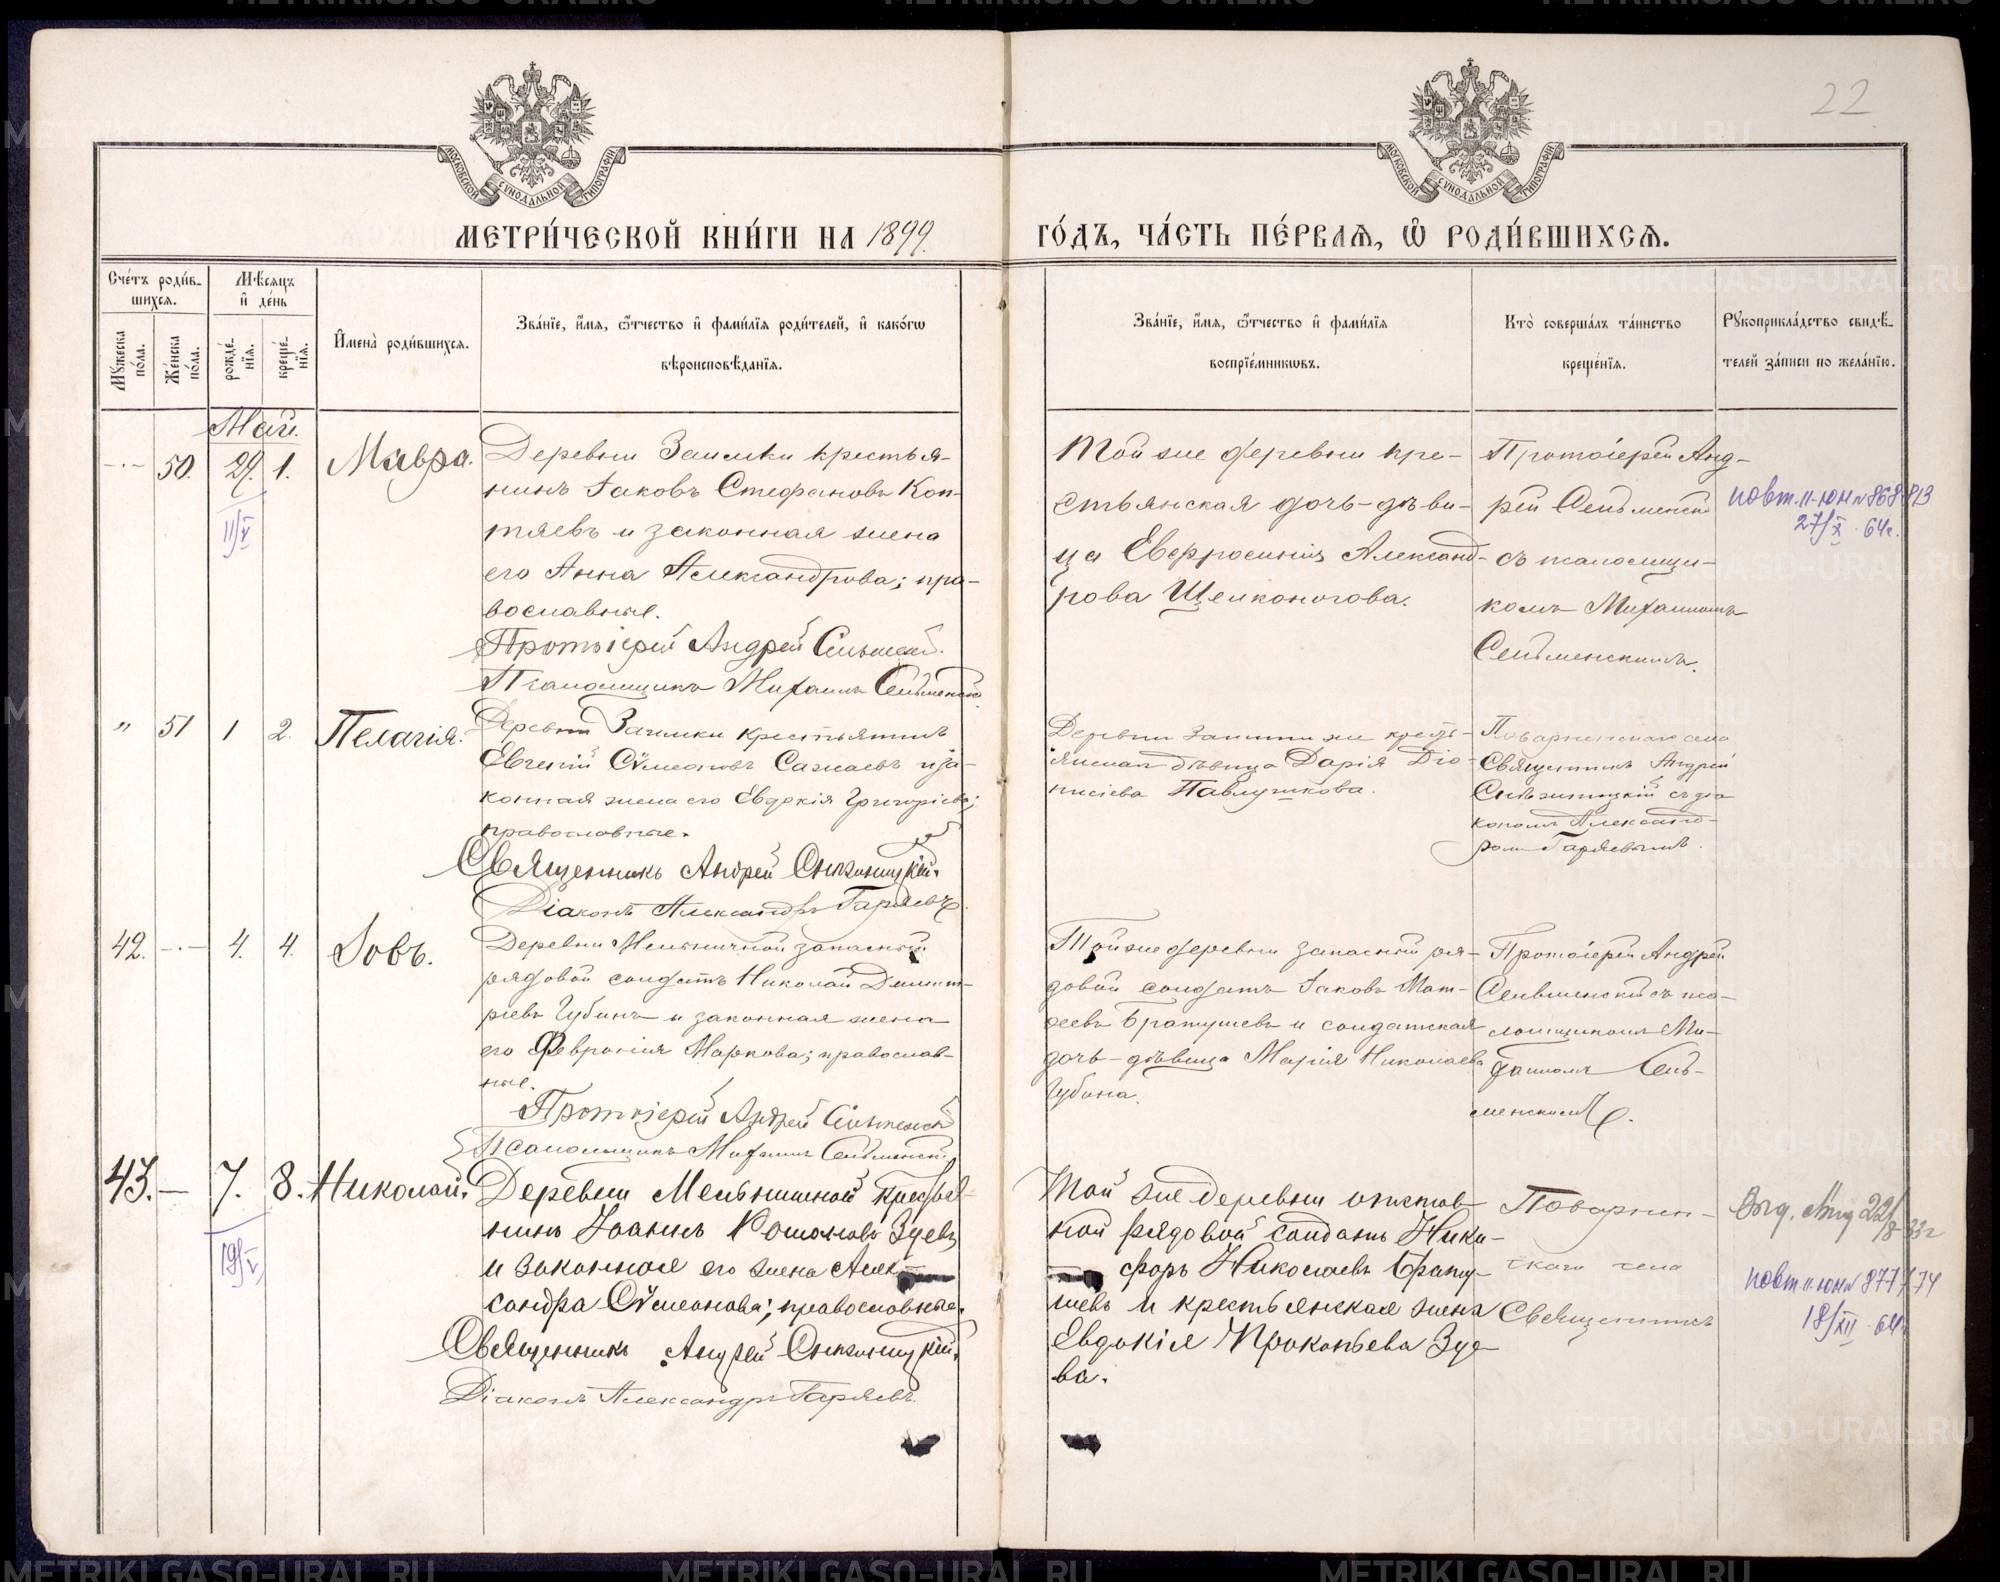 22
МЕТРИ́ЧЕСКОЙ КНИ́ГИ НА 1899.
ГО́ДЪ, ЧА́СТЬ ПЕ́РВАѦ, Ѿ РОДИ́ВШИХСѦ.
Сче́тъ роди́в-
шихсѧ.
Мꙋжеска по́ла.
Же́нска по́ла.
Мѣ́сѧцъ и҆ де́нь
рожде́нїѧ.
креще́нїѧ.
И҆мена̀ роди́вшихсѧ.
Зва́нїе, и҆́мѧ, ѻ҆́тчество и҆ фами́лїѧ роди́телей, и҆ како́гѡ
вѣроисповѣ́данїѧ.
Зва́нїе, и҆́мѧ, ѻ҆́тчество и҆ фами́лїѧ
воспрїе́мникѡвъ.
Кто̀ соверша́лъ та́инство
креще́нїѧ.
Рꙋкоприкла́дство свидѣ́-
телей за́писи по жела́нїю.
Май.
-·- 50. 29. 1. Мавра.
11/V
Деревни Заимки крестья-
нинъ Іаковъ Стефановъ Коп-
тяевъ и законная жена
его Анна Александрова; пра-
вославные.
Протоіерей Андрей
Псаломщикъ Михаилъ
Той же деревни кре-
стьянская дочь-дѣви-
ца Евфросинія Александ-
рова Щелконогова.
Протоіерей Анд-
рей
съ псаломщи-
комъ Михаиломъ
повт. II-юн № 868813
27/X 64г.
" 51 1 2. Пелагія.
Деревни Заимки крестьянинъ
Евгеній Сѵмеоновъ Сажаевъ и за-
конная жена его Евдокія Григоріева;
православные.
Священникъ Андрей
Діаконъ Александръ Гаряевъ.
Деревни Заимки же кресть-
янская дѣвица Дарія Діо-
нисіева Павлушкова.
Поварненскаго села
Священникъ Андрей
съ діа-
кономъ Александ-
ромъ Гаряевымъ.
42. -·- 4. 4. Іовъ.
Деревни Мельничной запасный
рядовой солдатъ Николай Димит-
ріевъ Губинъ и законная жена
его Февронія Маркова; православ-
ные.
Протоіерей Андрей
Псаломщикъ Михаилъ
Той же деревни запасный ря-
довой солдатъ Іаковъ Мат-
ѳеевъ Братушевъ и солдатская
дочь-дѣвица Марія Николаева
Губина.
Протоіерей Андрей
съ пса-
ломщикомъ Ми-
хаиломъ
43. — 7. 8. Николай.
19/V
Деревни Мельничной крестья-
нинъ Іоаннъ Романовъ Зуевъ
и законная его жена Алек-
сандра Сѵмеонова; православные.
Священникъ Андрей
Діаконъ Александръ Гаряевъ.
Той же деревни отстав-
ной рядовой солдатъ Ники-
форъ Николаевъ Брату-
шевъ и крестьянская жена
Евдокія Прокопьева Зуе-
ва.
Поварнен-
скаго села
Священникъ
повт. II-юн № 877774
18/XII 64г
METRIKI.GASO-URAL.RU